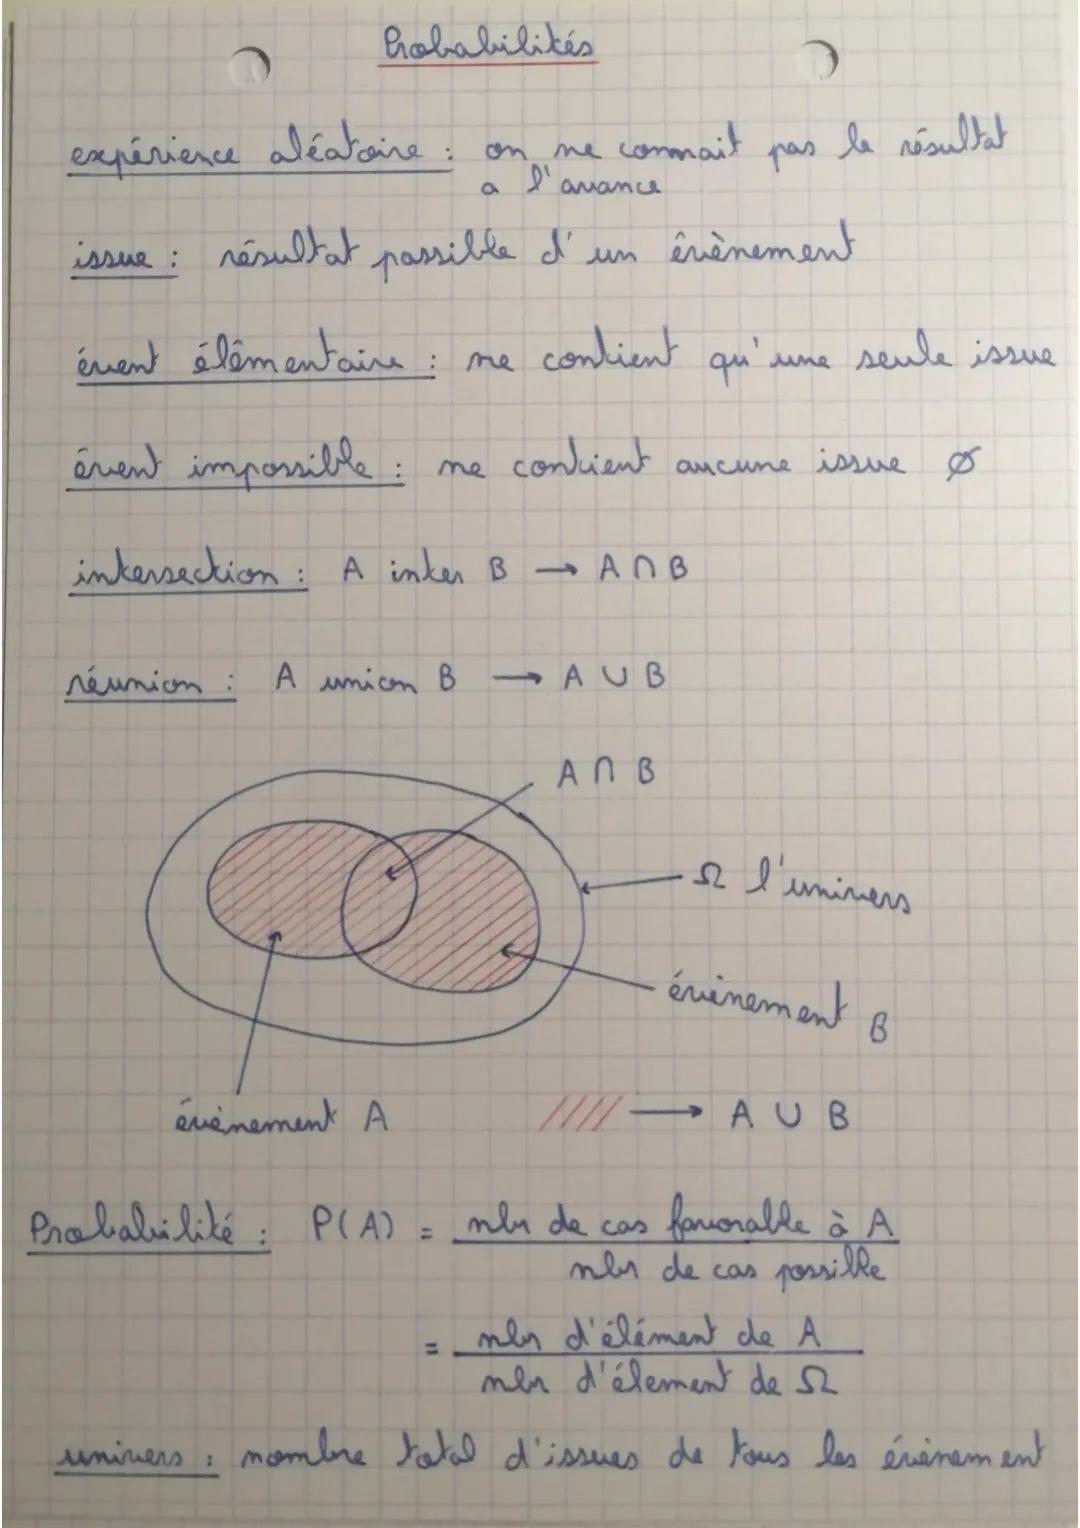 Probabilités
expérience aléatoire : on ne connait pas le résultat
a l'avance
issue : résultat possible d'un évènement
évent élémentaire : ne contient qu'une seule issue
évent impossible : ne contient aucune issue Ø
intersection : A inter B → A ∩ B
réunion : A union B → A ∪ B
A ∩ B
Ω l'univers
évènement B
évènement A
//// → A ∪ B
Probabilité : P(A) = nbr de cas favorable à A
nbr de cas possible
= nbr d'élément de A
nbr d'élement de Ω
univers : nombre total d'issues de tous les évènement